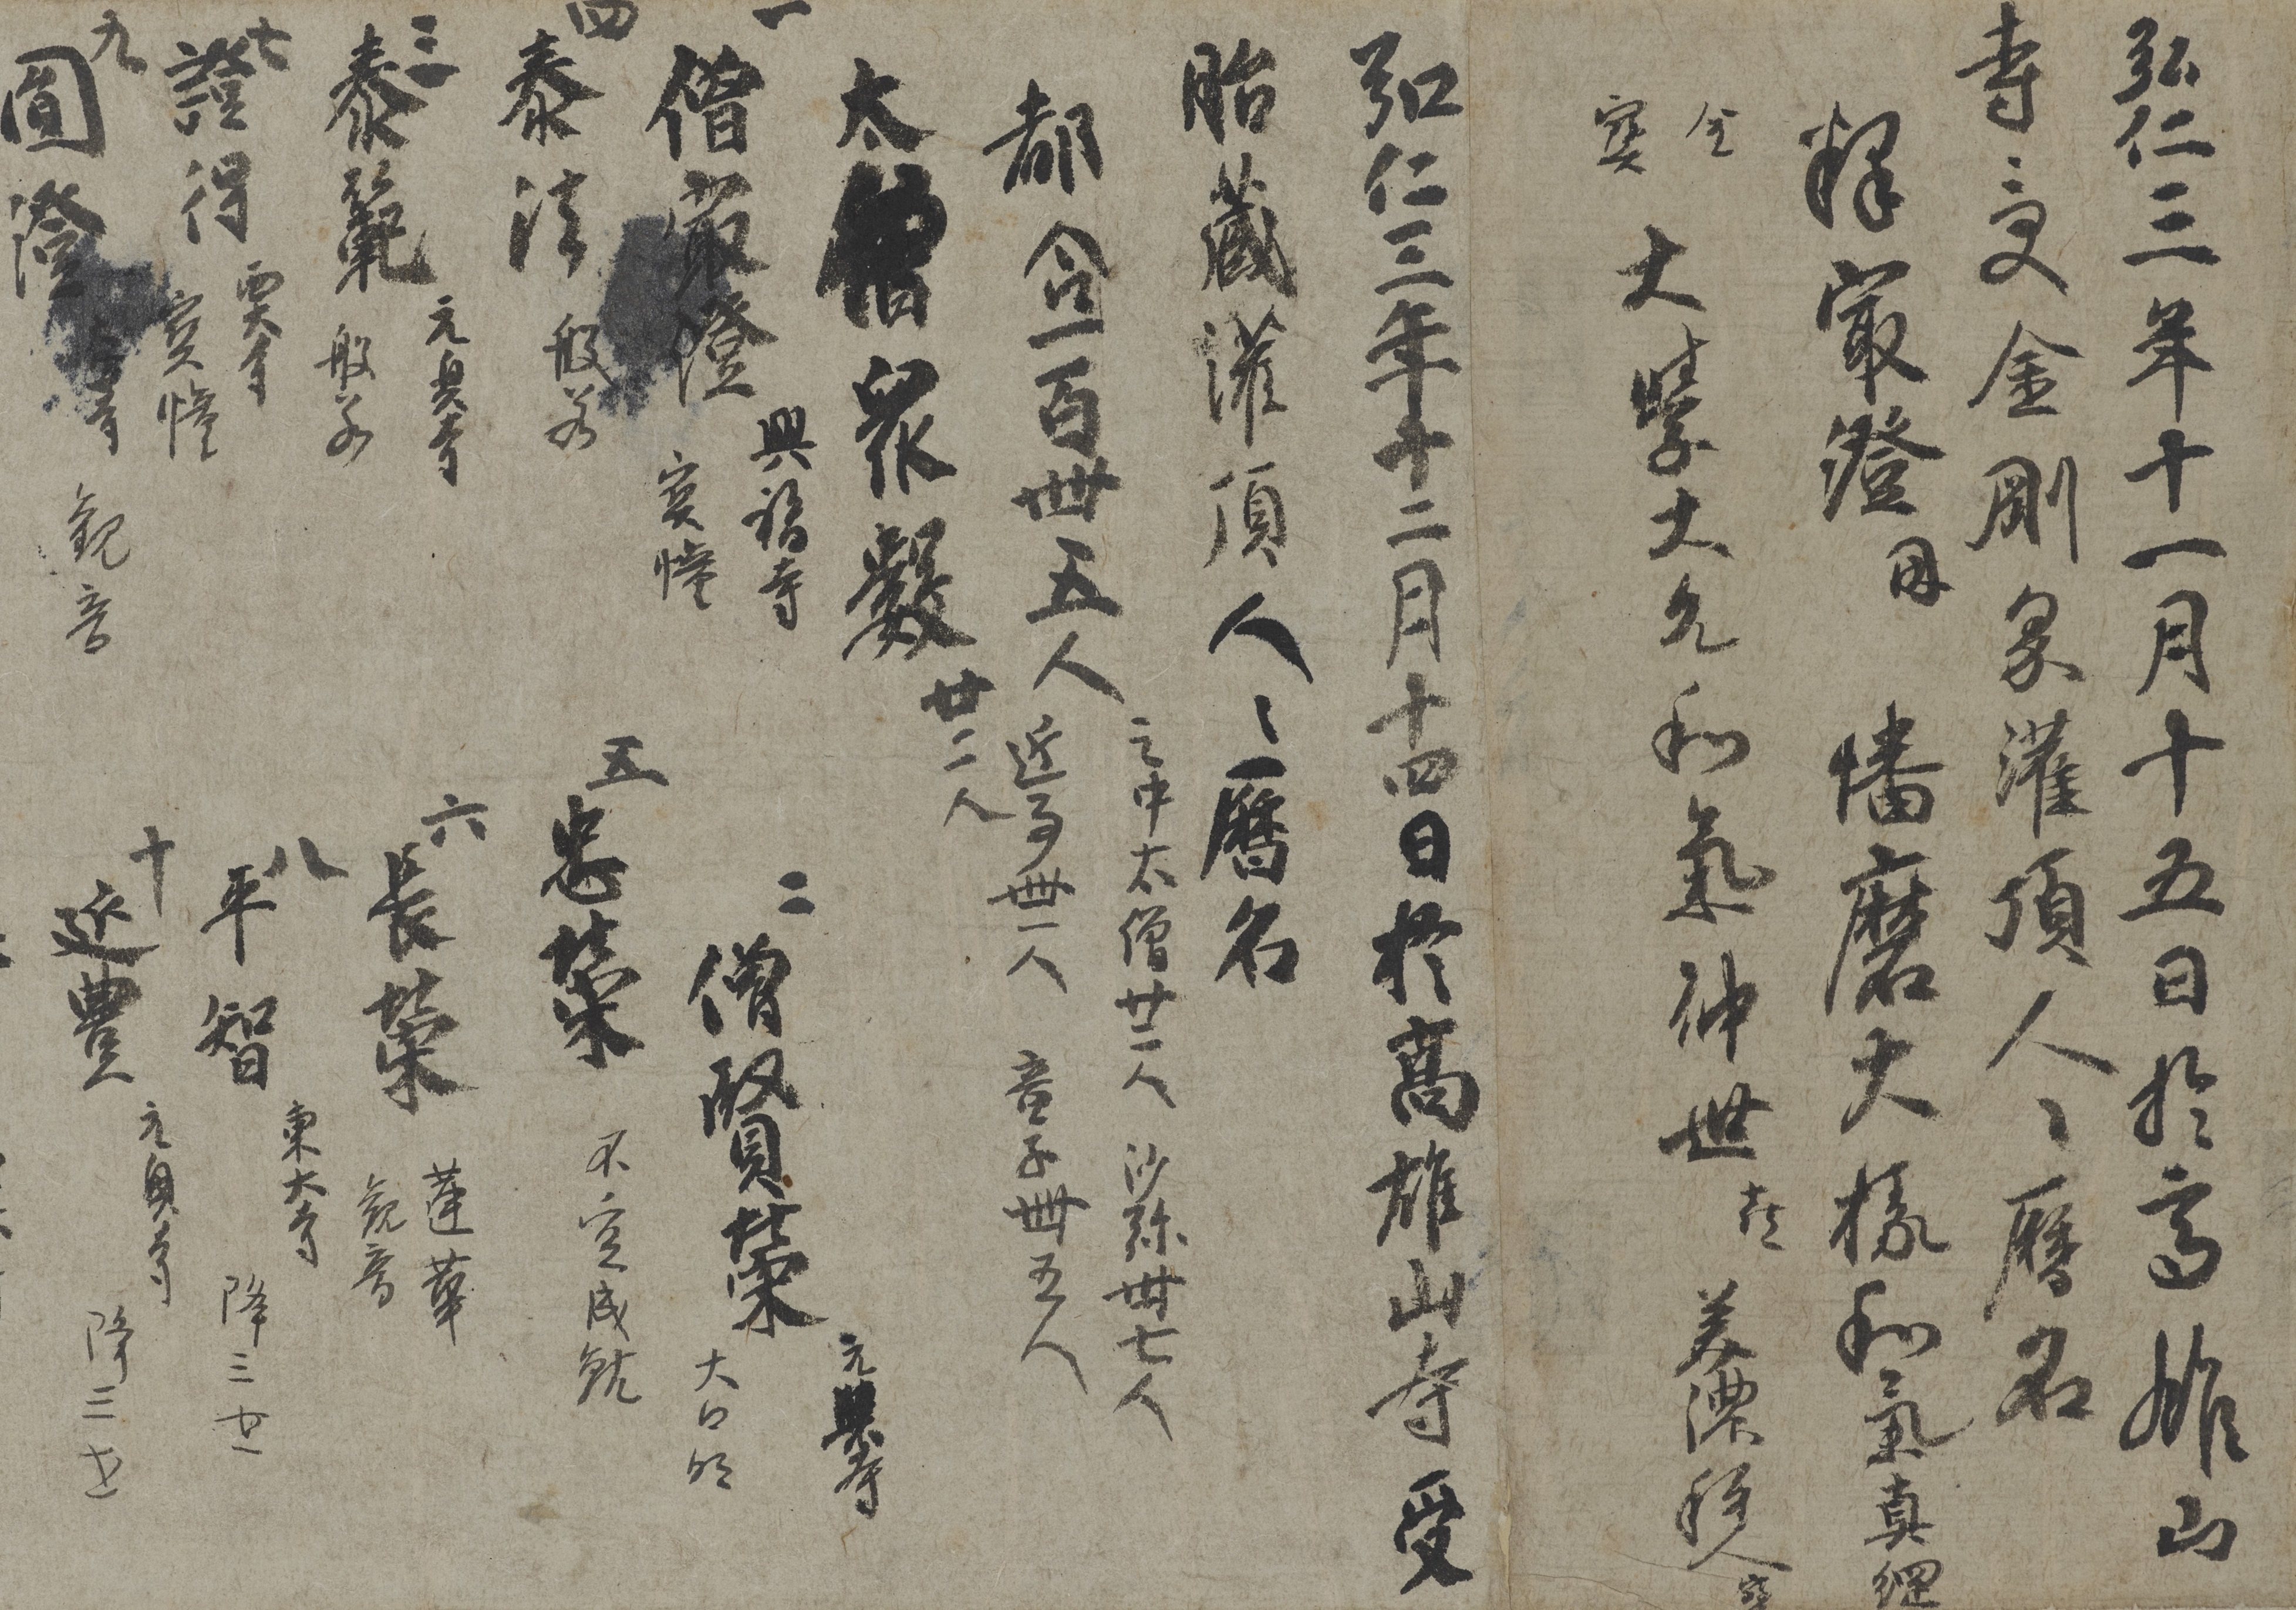 弘仁三年十一月十五日於高雄山
寺受金剛界灌頂人〻曆名
釋最澄 因 播磨大掾和氣真綱
金
寳 大學大允和氣仲世 喜 美濃種人 寳
弘仁三年十二月十四日於高雄山寺受
胎藏灌頂人〻曆名
都合一百卌五人
之中太僧廿二人 沙弥卌七人
近事卌一人 童子卌五人
太僧衆數 廿二人
一 僧最澄 興福寺 寳幢
二 僧賢榮 元興寺 大日
四 泰法 般若
五 忠榮 不空成就
三 泰範 元興寺 般若
六 長榮 蓮華 觀音
七 證得 寳幢
八 平智 東大寺 降三世
九 圓澄 觀音
十 延豊 元興寺 降三世